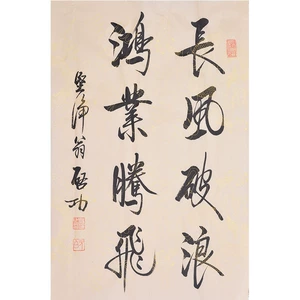 長風破浪
鴻業騰飛
堅淨翁啟功